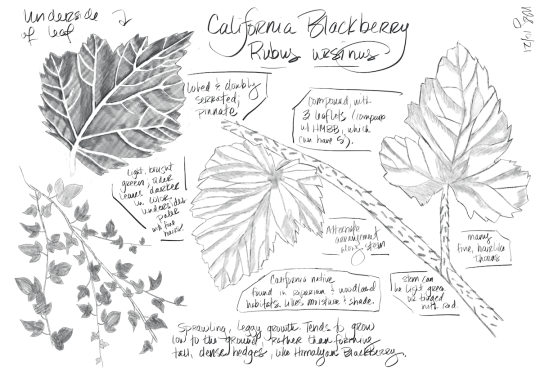 Underside
of leaf
California Blackberry
Rubus ursinus
lobed & doubly
serrated;
pinnate
compound, with
3 leaflets (compare
w/ HMBB, which
can have 5).
light, bright
green, older
leaves darker
in color.
undersides
paler
w/ fine
hairs
Alternate
arrangement
along stem
many
fine, hairlike
thorns
California native
found in riparian & woodland
habitats. Likes moisture & shade.
stem can
be light green
or tinged
with red.
Sprawling, leggy growth. Tends to grow
low to the ground, rather than forming
tall, dense hedges, like Himalayan Blackberry.